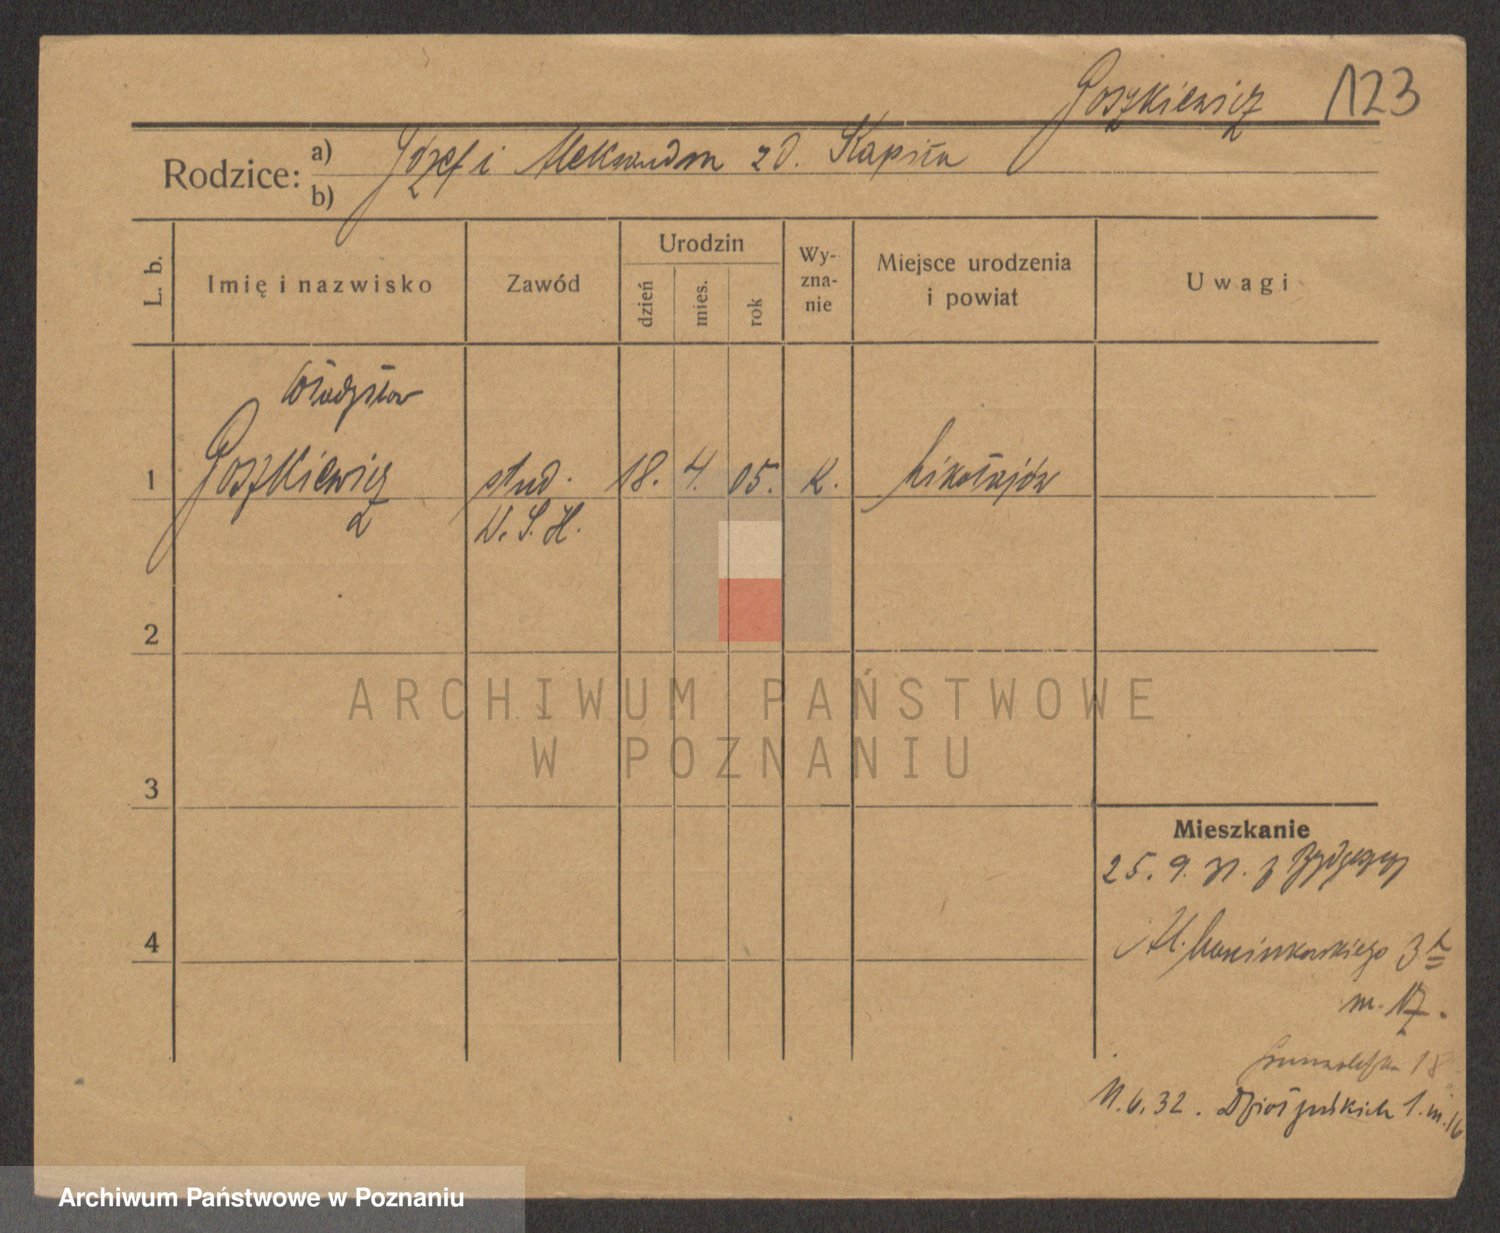 Goszkiewicz 123
Rodzice: a) Józef i Aleksandra z d. Kapsła
b)
L. b. Imię i nazwisko Zawód Urodzin dzień mies. rok Wy-zna-nie Miejsce urodzenia i powiat Uwagi
Władysław
1 Goszkiewicz stud. 18. 4. 05. K. Mikołajów
W. S. H.
2
ARCHIWUM PAŃSTWOWE
W POZNANIU
3
Mieszkanie
25. 9. 31. z Bydgoszczy
4
Al. Marcinkowskiego 3
m. 17.
18
11.6.32. Działyńskich 1. m. 16
Archiwum Państwowe w Poznaniu